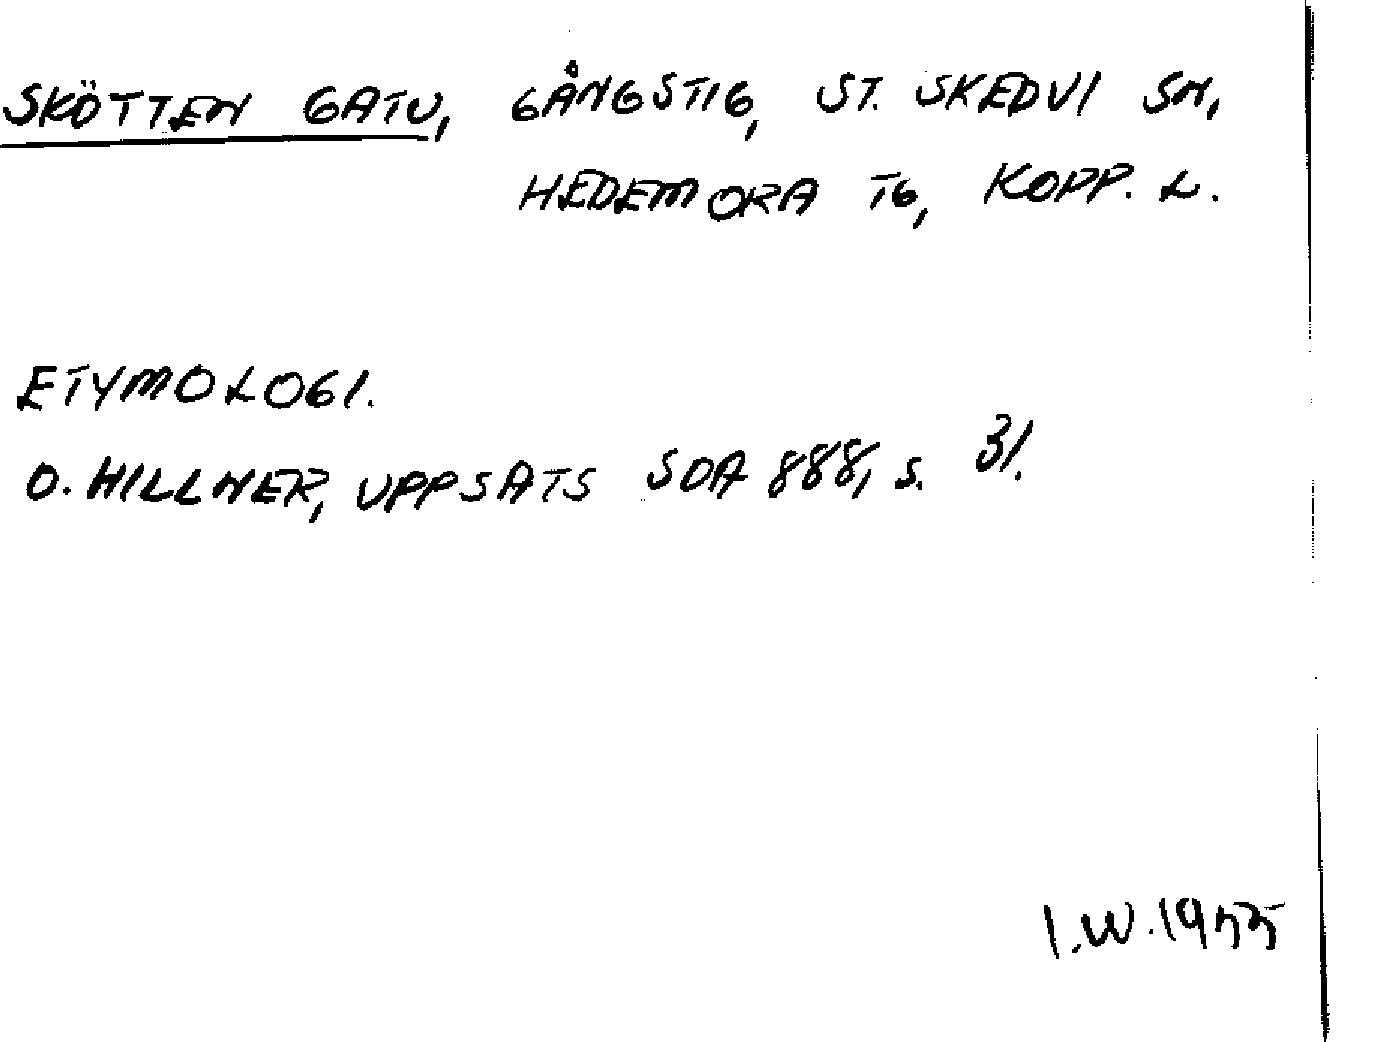 SKÖTTEN GATU, GÅNGSTIG, ST. SKEDVI SN,
HEDEMORA TG, KOPP. L.
ETYMOLOGI.
O. HILLNER, UPPSATS SOA 888, S. 31.
I.W. 1955